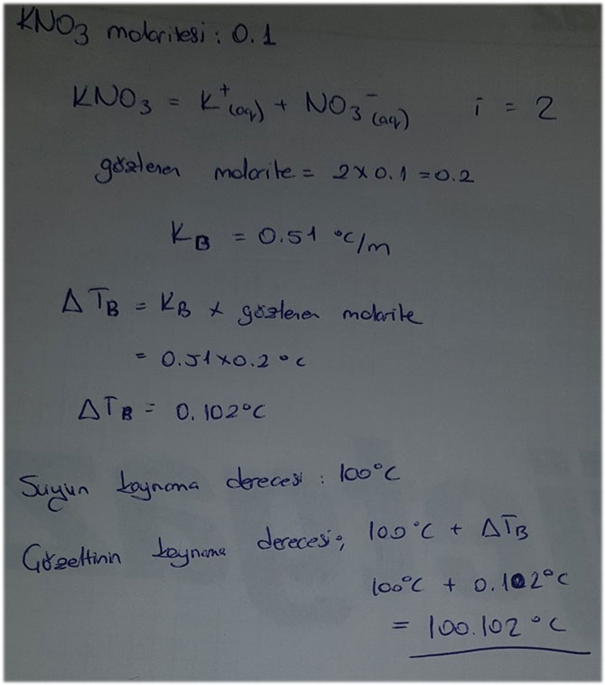 KNO3 molaritesi : 0.1
KNO3 = K+(aq) + NO3-(aq) i = 2
gözlenen molarite = 2x0.1 = 0.2
KB = 0.51 °C/m
ΔTB = KB x gözlenen molarite
= 0.51x0.2 °C
ΔTB = 0.102°C
Suyun kaynama derecesi : 100°C
Çözeltinin kaynama derecesi; 100°C + ΔTB
100°C + 0.102°C
= 100.102 °C